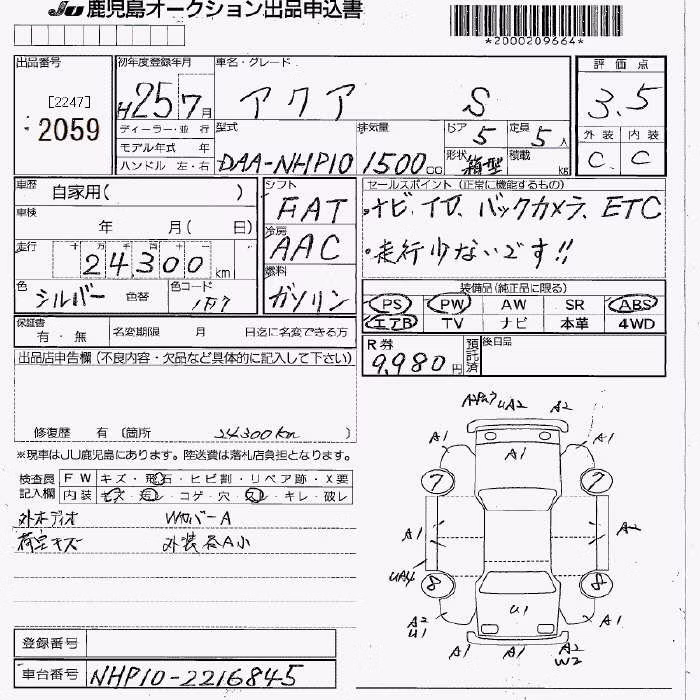 JU 鹿児島オークション出品申込書
*2000209664*
出品番号
[2247]
2059
初年度登録年月
H25 7月
ディーラー・並 行
モデル年式 年
ハンドル 左・右
車名・グレード
アクア S
型式
DAA-NHP10
排気量
1500cc
ドア 5
定員 5人
形状 箱型
積載 kg
評価点
3.5
外装 内装
C. C
車歴
自家用( )
車検
年 月( 日)
走行
十 万 千 百 十 一
24,300 km
色
シルバー 色替
色コード
1F7
シフト
FAT
冷房
AAC
燃料
ガソリン
セールスポイント (正常に機能するもの)
・ナビ、TV、バックカメラ、ETC
・走行少ないです!!
装備品(純正品に限る)
PS PW AW SR ABS
エアB TV ナビ 本革 4WD
保証書
有・無
名変期限 月 日迄に名変できる方
R券
9,980円
預託済
後日品
出品店申告欄(不良内容・欠品など具体的に記入して下さい)
修復歴 有 (箇所 24300km )
※現車はJU鹿児島にあります。陸送費は落札店負担となります。
検査員
記入欄
FW キズ・飛石・ヒビ割・リペア跡・X要
内装 キズ・汚レ・コゲ・穴・スレ・キレ・破レ
外オーディオ Wカバー A
荷室キズ 外装各A小
A2 UA2 A2
A1 A1 A1
7 7
A1 A2
8 8
A2 U1 U1 A1
A1 A1 A2
W2
登録番号
車台番号 NHP10-2216845